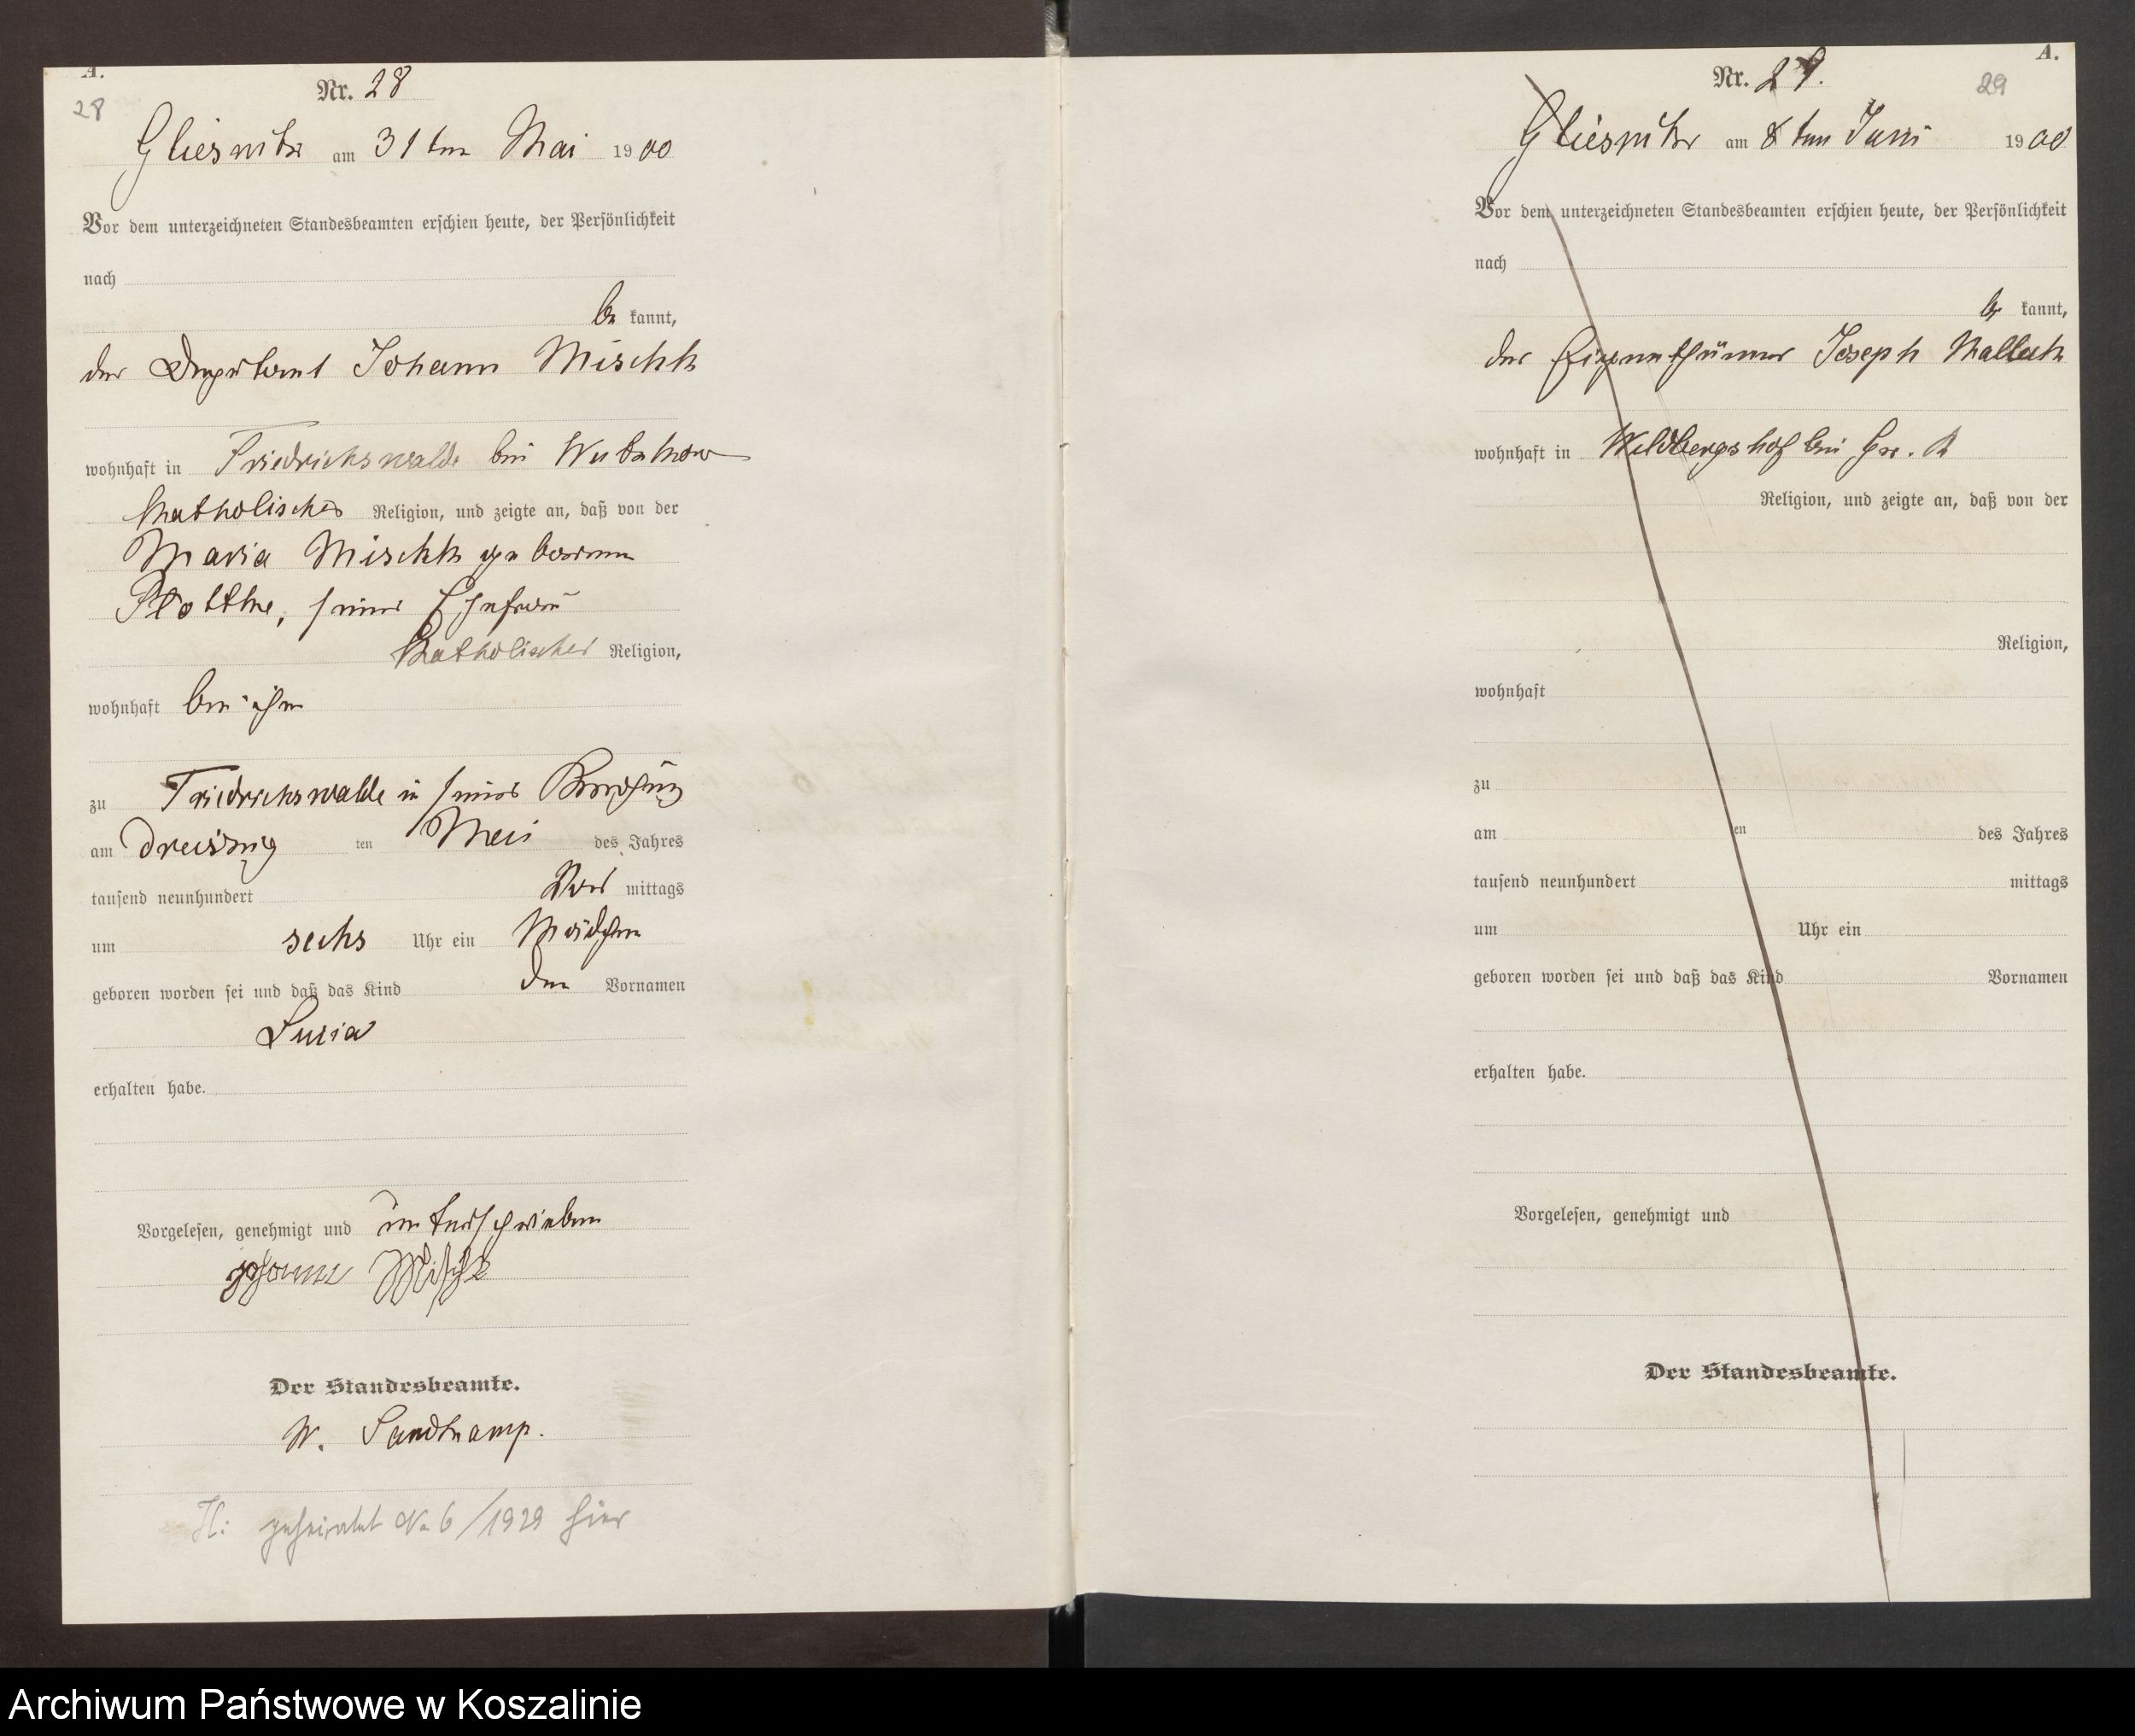 A.
Nr. 28
28
Gliesnitz am 31 ten Mai 1900
Vor dem unterzeichneten Standesbeamten erschien heute, der Persönlichkeit
nach
be kannt,
der Deputant Johann Mischk
wohnhaft in Friedrichswalde bei Wutzkow
katholischer Religion, und zeigte an, daß von der
Maria Mischk geborenen
Plottke, seiner Ehefrau
katholischer Religion,
wohnhaft bei ihm
zu Friedrichswalde in seiner Behausung
am dreißig ten Mai des Jahres
tausend neunhundert Vor mittags
um sechs Uhr ein Mädchen
geboren worden sei und daß das Kind den Vornamen
Luzia
erhalten habe.
Vorgelesen, genehmigt und unterschrieben
Johann Mischk
Der Standesbeamte.
W. Sandkamp.
H: geheiratet No 6/1929 hier
A.
Nr. 29.
29
Gliesnitz am 8 ten Juni 1900
Vor dem unterzeichneten Standesbeamten erschien heute, der Persönlichkeit
nach
be kannt,
der Eigenthümer Joseph Malleck
wohnhaft in Wildbergshof bei Gr. R
Religion, und zeigte an, daß von der
Religion,
wohnhaft
zu
am ten des Jahres
tausend neunhundert mittags
um Uhr ein
geboren worden sei und daß das Kind Vornamen
erhalten habe.
Vorgelesen, genehmigt und
Der Standesbeamte.
Archiwum Państwowe w Koszalinie